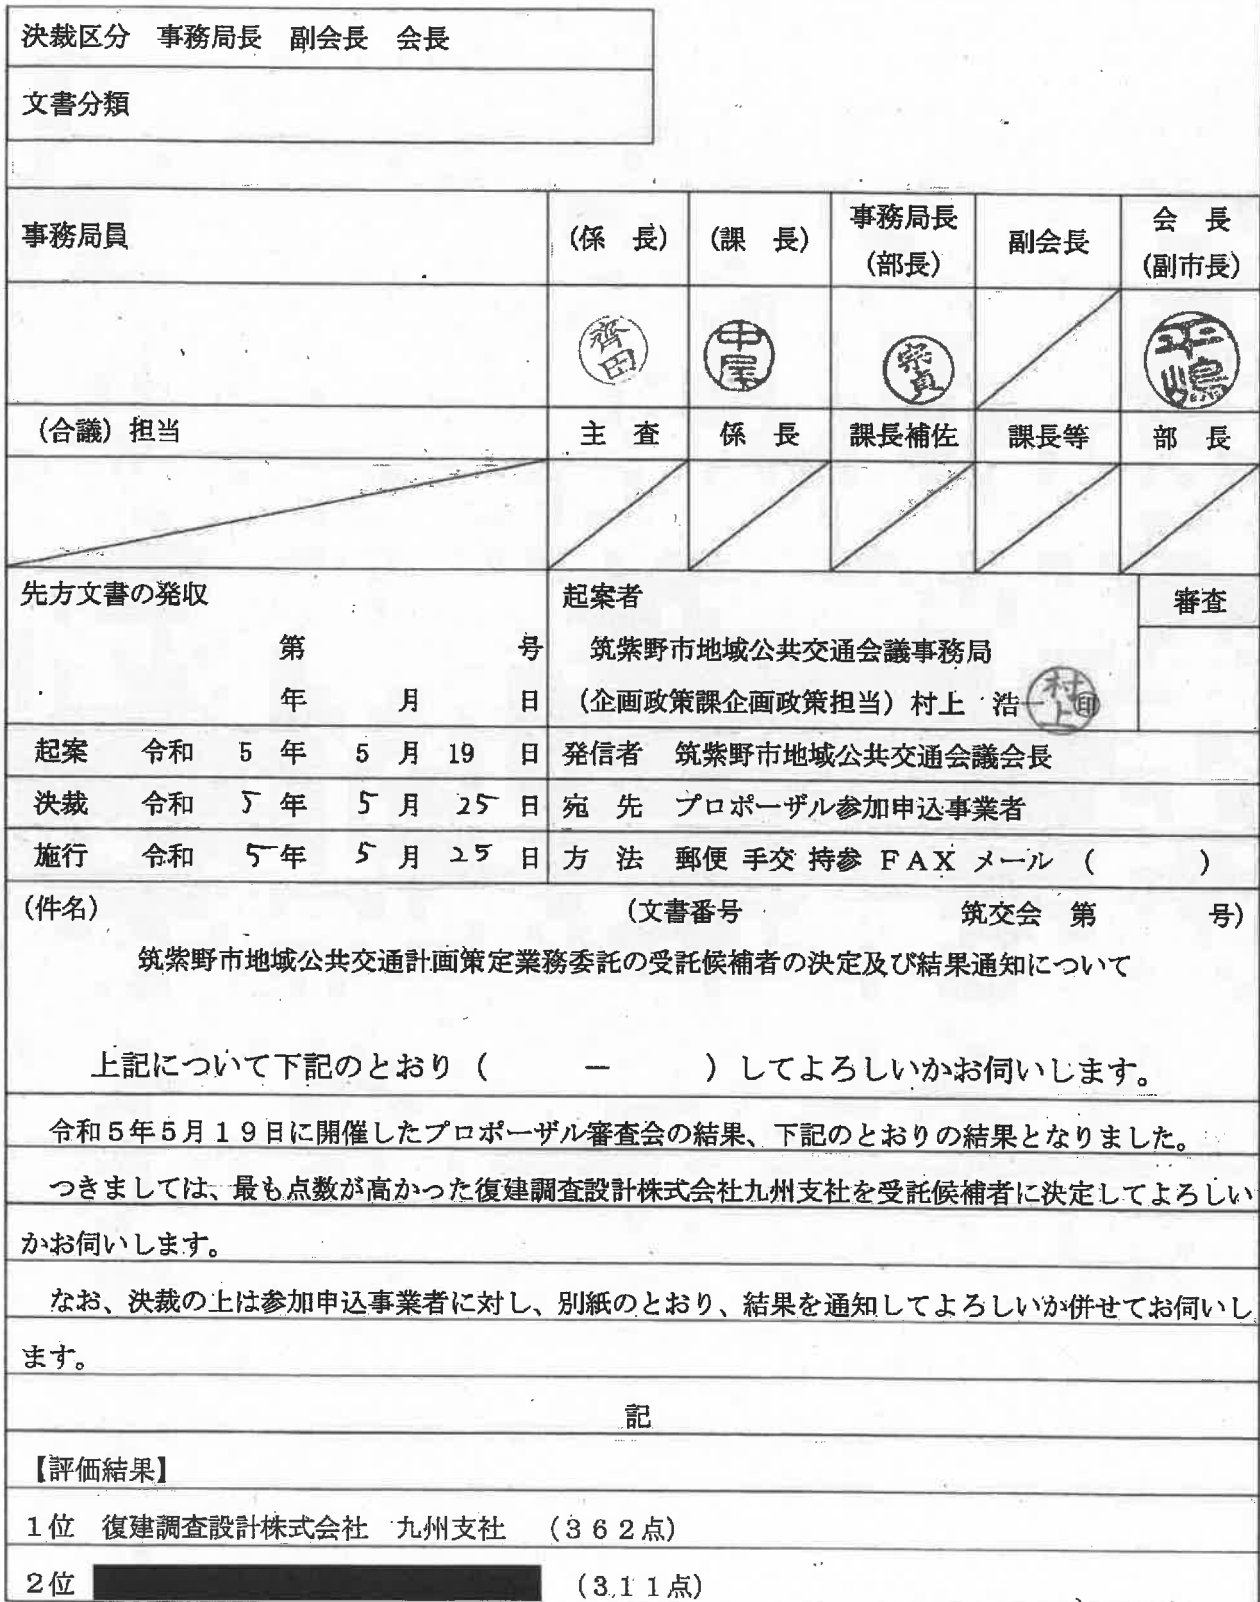 決裁区分 事務局長 副会長 会長
文書分類
事務局員 (係 長) (課 長) 事務局長 (部長) 副会長 会 長 (副市長)
齊田 中尾 宗貞 平嶋
(合議) 担当 主 査 係 長 課長補佐 課長等 部 長
先方文書の発収
第 号
年 月 日
起案者
筑紫野市地域公共交通会議事務局
(企画政策課企画政策担当) 村上 浩一 村上 印
審査
起案 令和 5 年 5 月 19 日 発信者 筑紫野市地域公共交通会議会長
決裁 令和 5 年 5 月 25 日 宛 先 プロポーザル参加申込事業者
施行 令和 5 年 5 月 25 日 方 法 郵便 手交 持参 FAX メール ( )
(件名) (文書番号 筑交会 第 号)
筑紫野市地域公共交通計画策定業務委託の受託候補者の決定及び結果通知について
上記について下記のとおり ( ー ) してよろしいかお伺いします。
令和5年5月19日に開催したプロポーザル審査会の結果、下記のとおりの結果となりました。
つきましては、最も点数が高かった復建調査設計株式会社九州支社を受託候補者に決定してよろしい
かお伺いします。
なお、決裁の上は参加申込事業者に対し、別紙のとおり、結果を通知してよろしいか併せてお伺いし
ます。
記
【評価結果】
1位 復建調査設計株式会社 九州支社 (362点)
2位 (311点)